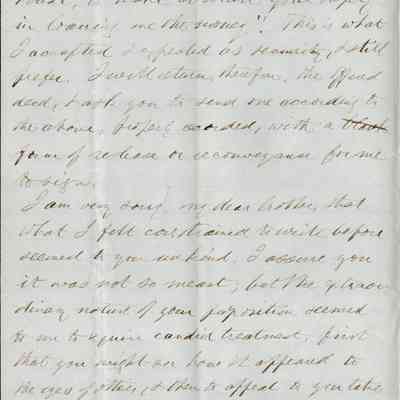 in loaning me the money". This is what
I accepted & expected as security, & still
prefer. I will return, therefore, the
deed, & ask you to send one according to
the above, properly recorded, with a blank
form of release or reconveyance for me
to sign.
I am very sorry, my dear brother, that
what I felt constrained to write before
seemed to you unkind. I assure you
it was not so meant; but the extraor-
dinary nature of your proposition seemed
to me to require candid treatment, first
that you might see how it appeared to
the eyes of others, & then to appeal to you